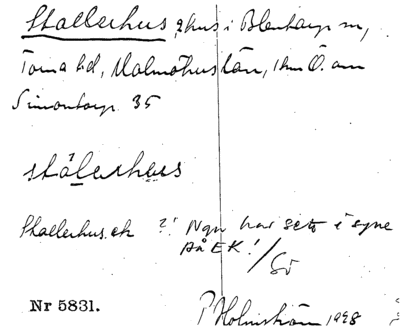 Stallerhus, hus i Blentarp sn,
Torna hd, Malmöhus län, 1 km Ö. om
Simontorp 35
stálerhus
Stallerhus. ek ?! Ngn har sett i syne
på EK! / Sö
Nr 5831.
P Holmström 1928